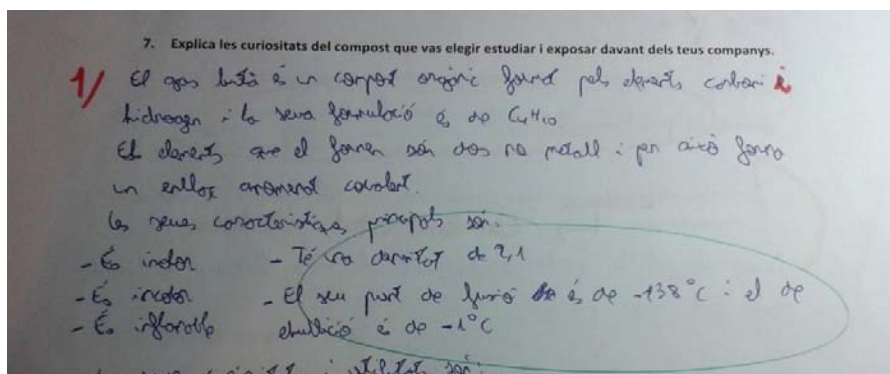 7. Explica les curiositats del compost que vas elegir estudiar i exposar davant dels teus companys.
1/ El gas butà és un compost orgànic format pels elements carboni i
hidrogen i la seva formulació és de C4H10
Els elements que el formen són dos no metall i per això forma
un enllaç anomenat covalent.
Les seues característiques principals són:
- És inodor - Té una densitat de 2,1
- És incolor - El seu punt de fusió és de -138°C i el de
- És inflamable ebullició és de -1°C
utilitat són: